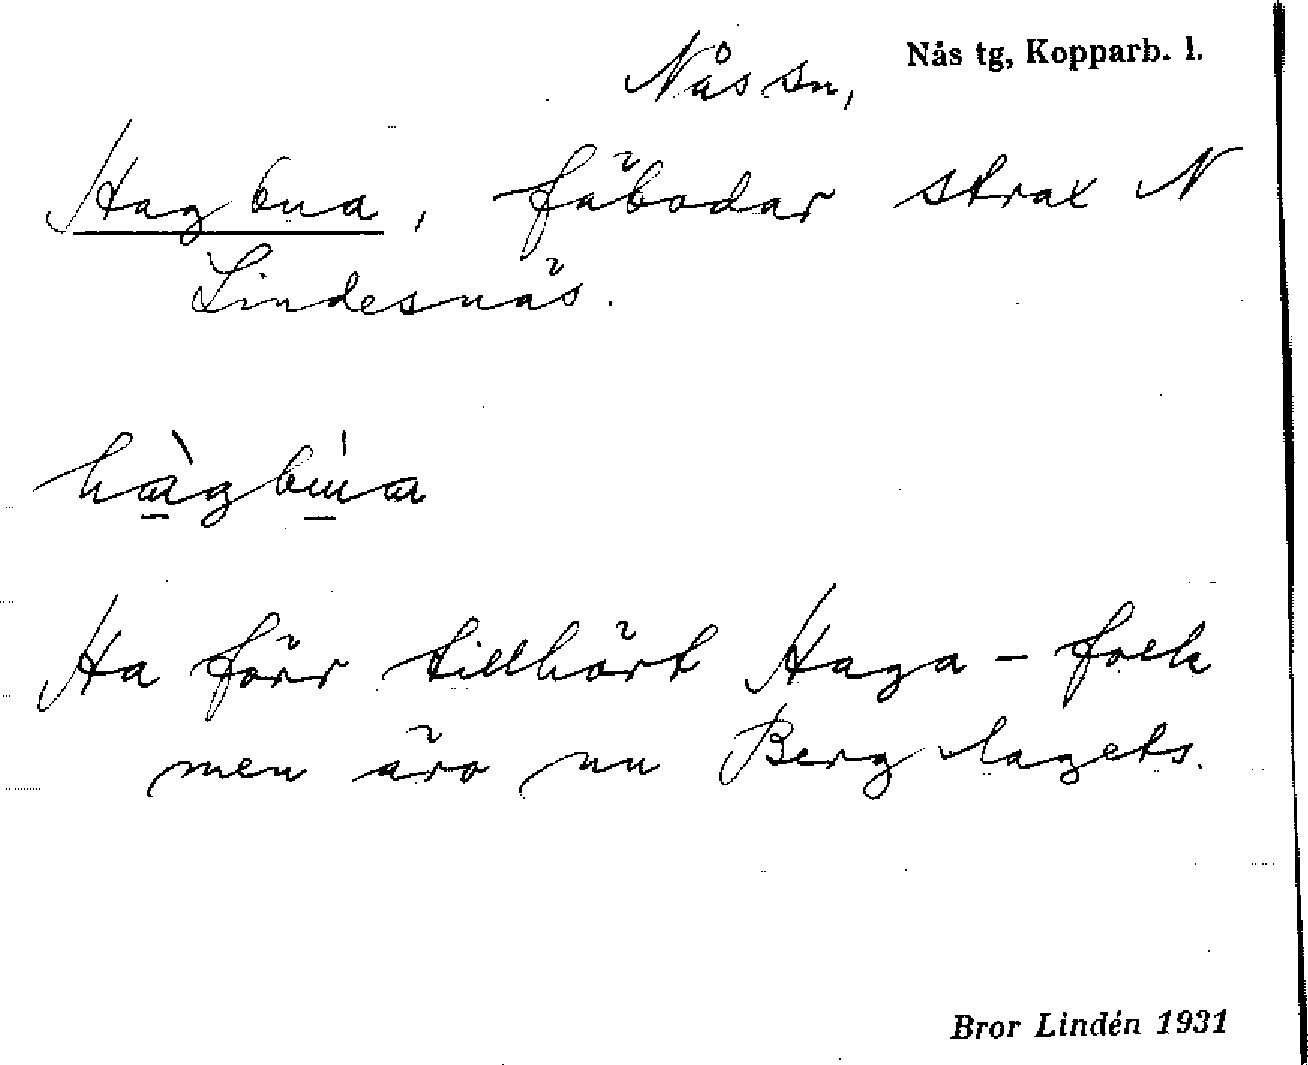 Nås tg, Kopparb. l.
Nås sn,
Hagbua, fäbodar strax N
Lindesnäs.
hàgbúa
Ha förr tillhört Haga-folk
men äro nu Bergslagets.
Bror Lindén 1931